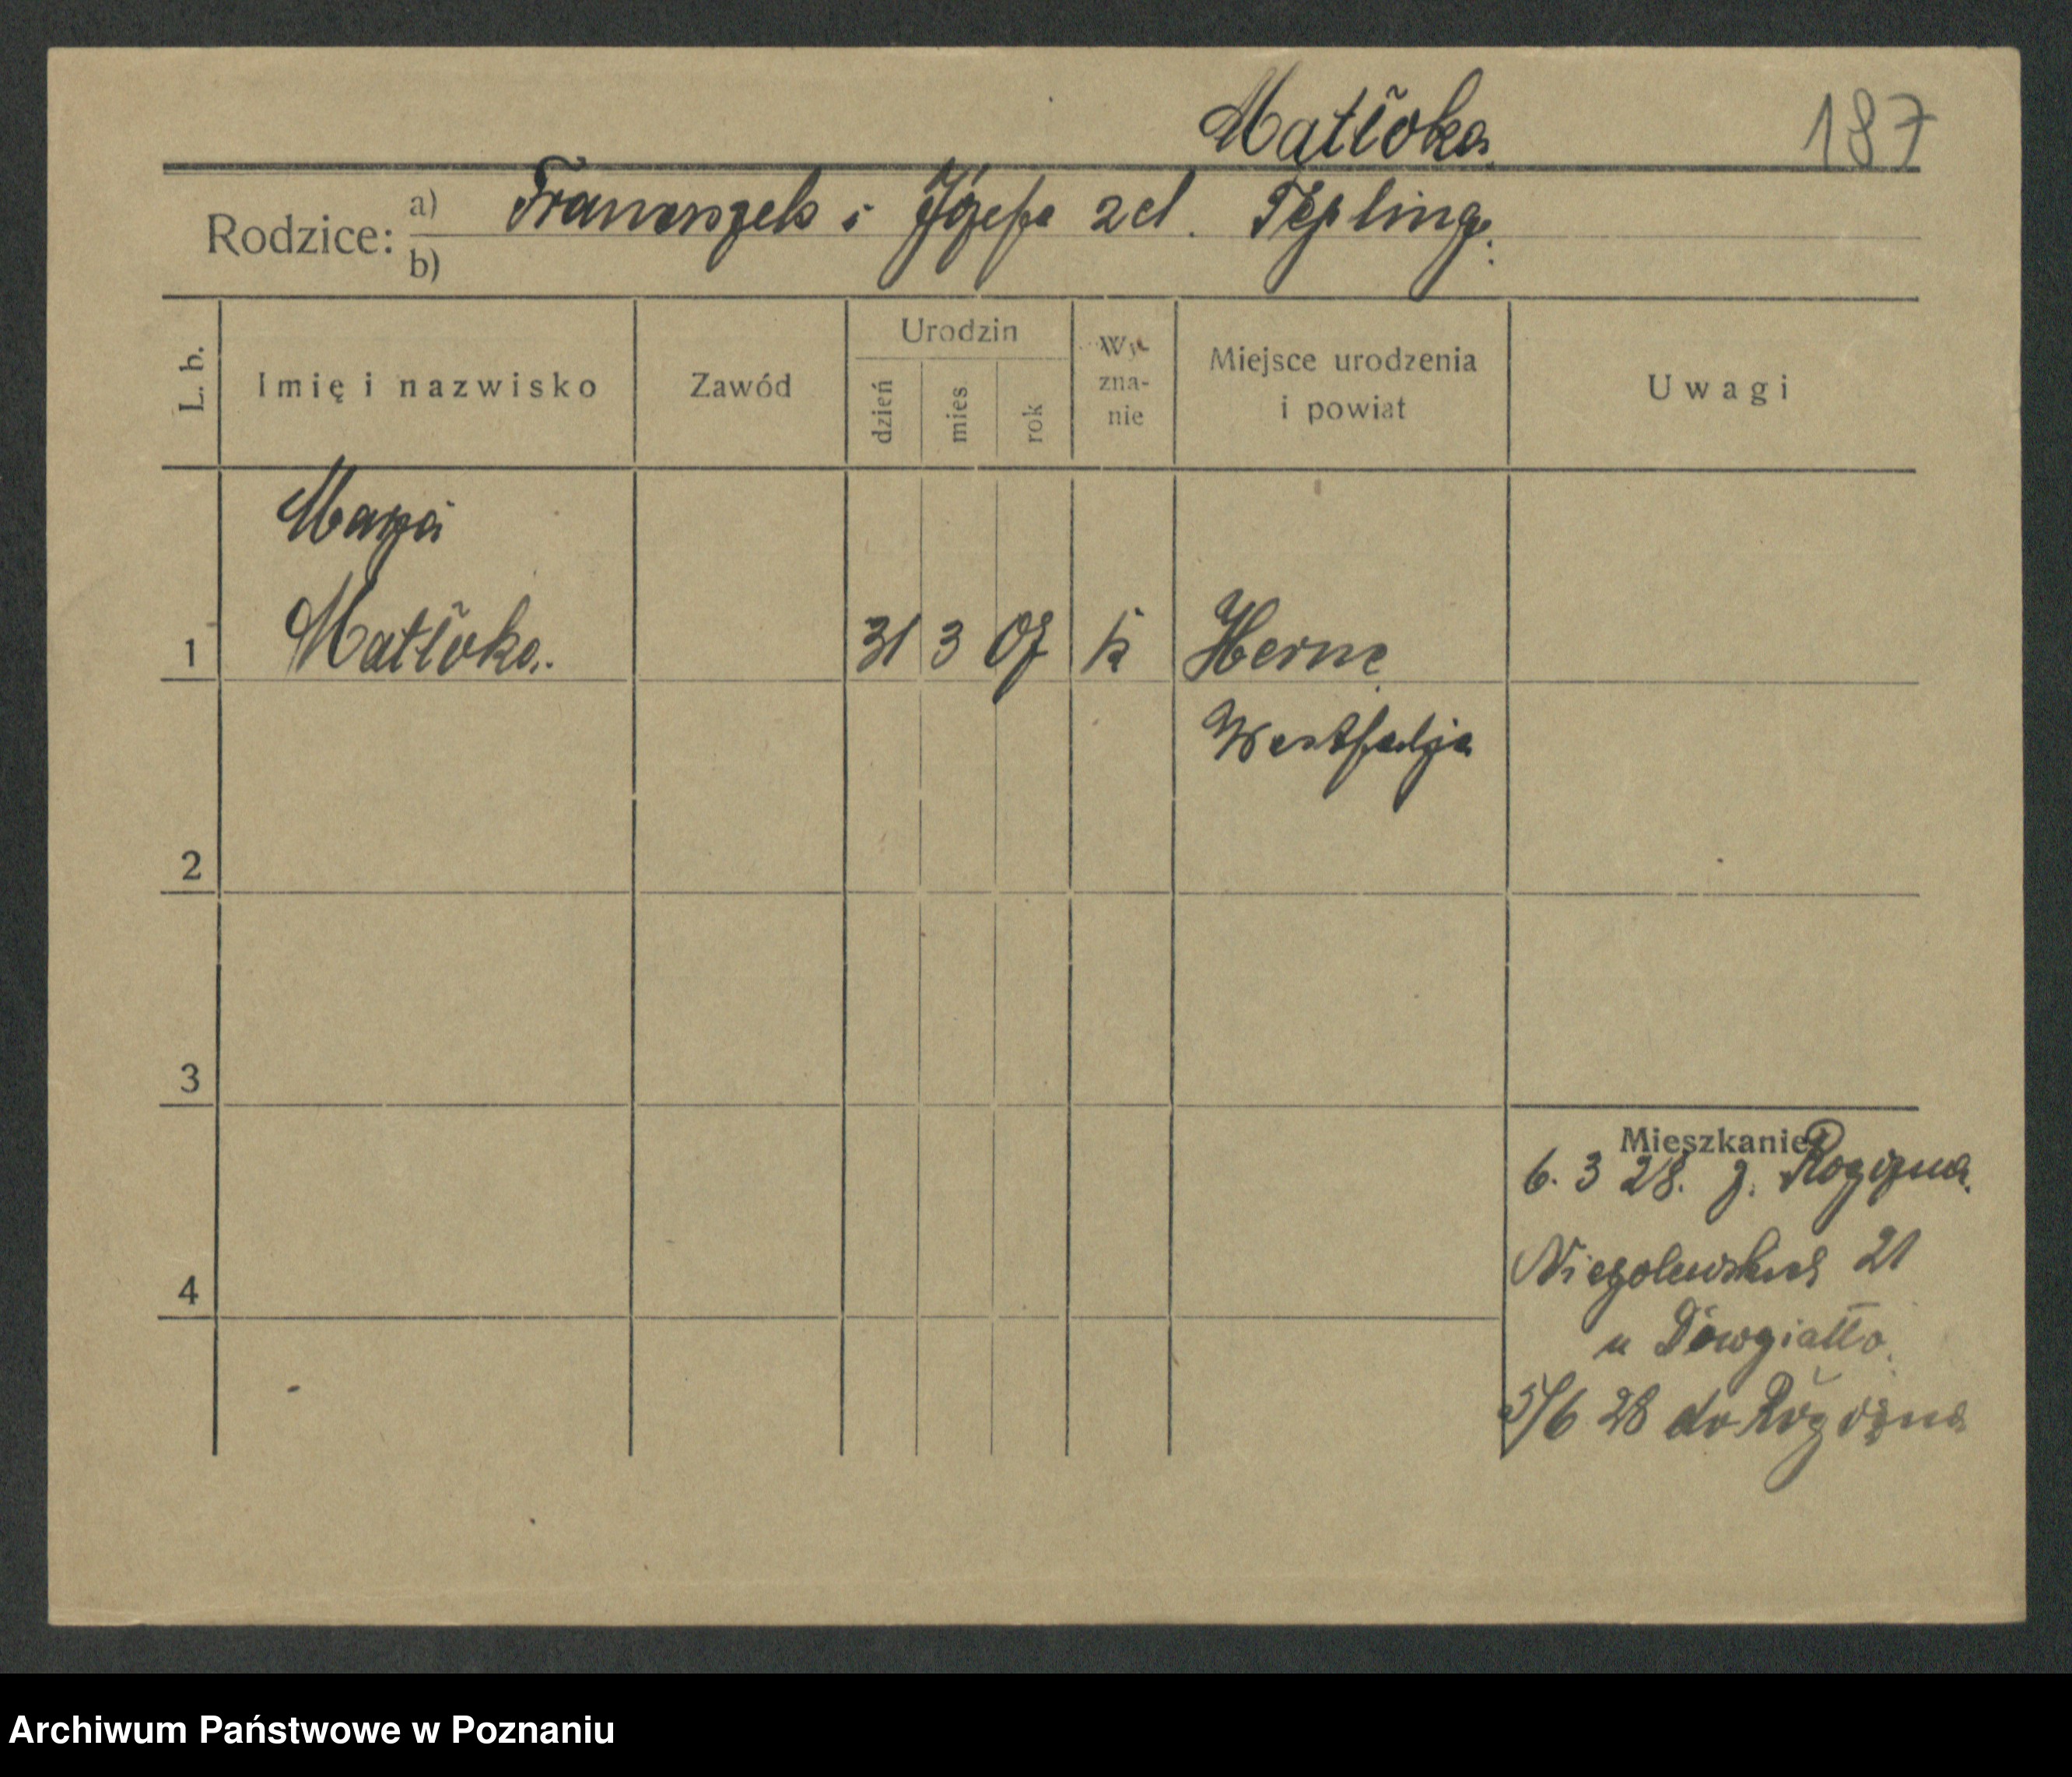 Matłoka
187
Rodzice: a) Franciszek i Józefa zd. Tepling.
b)
L. b.
Imię i nazwisko
Zawód
Urodzin
dzień
mies
rok
Wy-
zna-
nie
Miejsce urodzenia
i powiat
Uwagi
Marja
1 Matłoka. 31 3 07 k Herne
Westfalja
2
3
Mieszkanie
6. 3 28. z. Rogozna.
4
Niegolewskich 21
u Dowgiałło.
5/6 28 do Rogozna
Archiwum Państwowe w Poznaniu